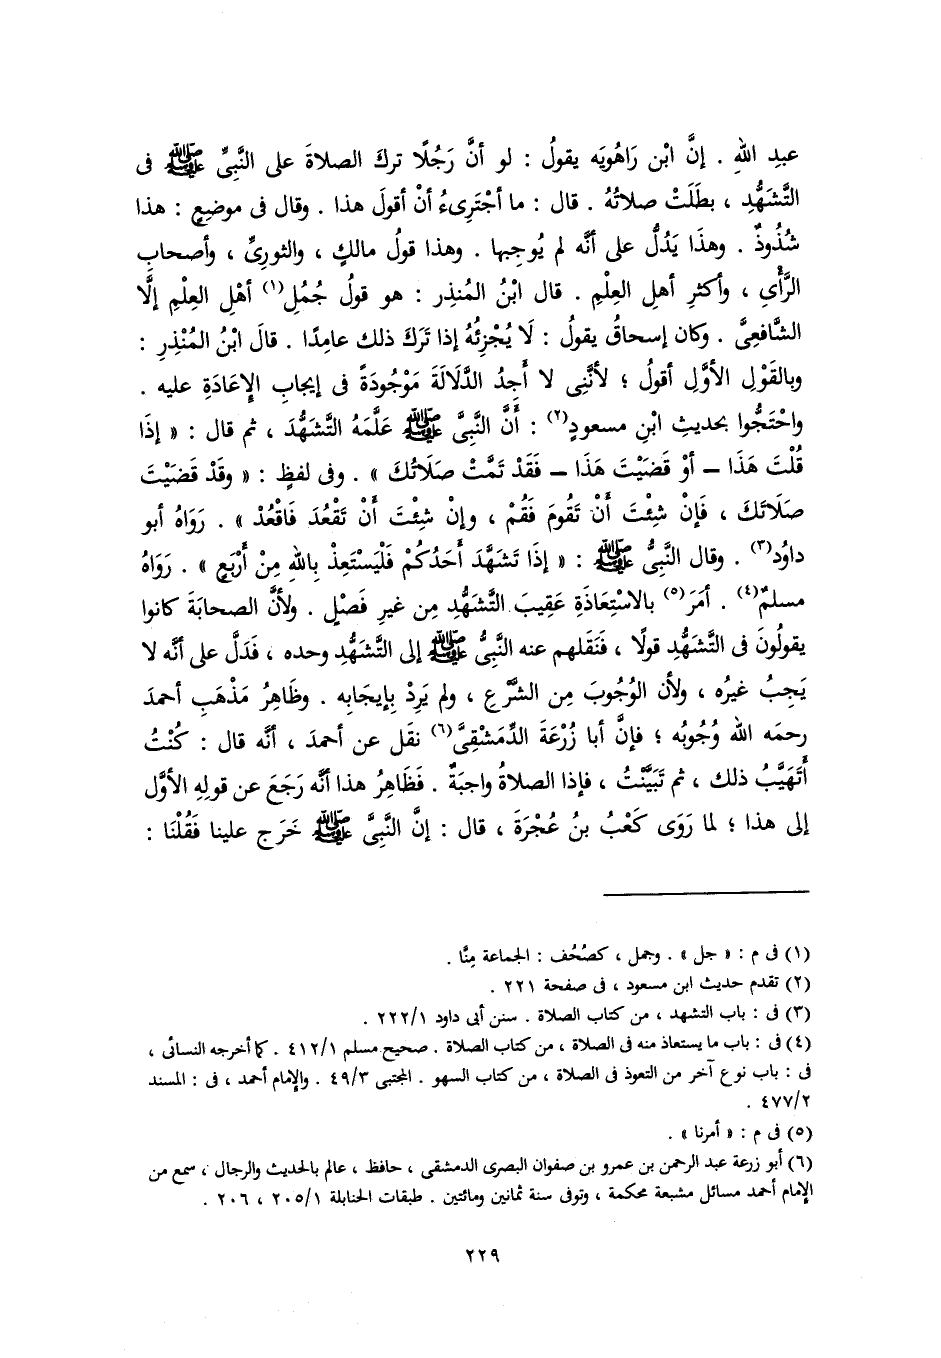 عبدِ اللهِ . إنَّ ابْن رَاهُويَه يقولُ : لو أنَّ رَجُلًا تركَ الصلاةَ على النَّبِىِّ ﷺ فى
التَّشَهُّدِ ، بطَلَتْ صلاتُهُ . قال : ما أجْتَرِىءُ أنْ أقولَ هذا . وقال فى موضعٍ : هذا
شُذُوذٌ . وهذَا يَدُلُّ على أنَّه لم يُوجِبها . وهذا قولُ مالكٍ ، والثورىِّ ، وأصحابِ
الرَّأْىِ ، وأكثرِ أهلِ العِلْمِ . قال ابْنُ المُنذِر : هو قولُ جُمُلِ(١) أهْلِ العِلْمِ إلَّا
الشَّافعِىَّ . وكان إسحاقُ يقولُ : لَا يُجْزِئُهُ إذا تَرَكَ ذلك عامِدًا . قالَ ابْنُ المُنْذِرِ :
وبالقَوْلِ الأوَّلِ أقولُ ؛ لأنَّنِى لا أجِدُ الدَّلَالَةَ مَوْجُودَةً فى إيجابِ الإِعَادَةِ عليه .
واحْتَجُّوا بحديثِ ابْنِ مسعودٍ(٢) : أَنَّ النَّبِىَّ ﷺ عَلَّمَهُ التَّشَهُّدَ ، ثم قال : « إذَا
قُلْتَ هَذَا – أوْ قَضَيْتَ هَذَا – فَقَدْ تَمَّتْ صَلَاتُكَ » . وفى لفظٍ : « وقَدْ قَضَيْتَ
صَلَاتَكَ ، فَإنْ شِئْتَ أَنْ تَقُومَ فَقُمْ ، وإنْ شِئْتَ أَنْ تَقْعُدَ فَاقْعُدْ » . رَوَاهُ أبو
داوُد(٣) . وقال النَّبِىُّ ﷺ : « إذَا تَشَهَّدَ أحَدُكُمْ فَلْيَسْتَعِذْ بِاللهِ مِنْ أَرْبَعٍ » . رَوَاهُ
مسلمٌ(٤) . أمَرَ(٥) بالاسْتِعَاذَةِ عَقِيبَ التَّشَهُّدِ مِن غيرِ فَصْلٍ . ولأنَّ الصحابَةَ كانوا
يقولُونَ فى التَّشَهُّدِ قولًا ، فَنَقَلهم عنه النَّبِىُّ ﷺ إلى التَّشَهُّدِ وحده ، فَدَلَّ على أنَّه لا
يَجِبُ غيرُه ، ولأن الوُجُوبَ مِن الشَّرْعِ ، ولم يَرِدْ بإيجَابِه . وظَاهِرُ مَذْهَبِ أحمدَ
رحمَه الله وُجُوبُه ؛ فإنَّ أبا زُرْعَةَ الدِّمَشْقِىَّ(٦) نقَل عن أحمدَ ، أنَّه قال : كُنْتُ
أَتَهَيَّبُ ذلك ، ثم تَبَيَّنْتُ ، فإذا الصلاةُ واجبَةٌ . فَظَاهِرُ هذا أنَّه رَجَعَ عن قولِهِ الأوَّلِ
إلى هذا ؛ لما رَوَى كَعْبُ بنُ عُجْرَةَ ، قال : إنَّ النَّبِىَّ ﷺ خَرَج علينا فَقُلْنَا :
(١) فى م : « جل » . وجمل ، كصُحُف : الجماعة مِنَّا .
(٢) تقدم حديث ابن مسعود ، فى صفحة ٢٢١ .
(٣) فى : باب التشهد ، من كتاب الصلاة . سنن أبى داود ٢٢٢/١ .
(٤) فى : باب ما يستعاذ منه فى الصلاة ، من كتاب الصلاة . صحيح مسلم ٤١٢/١ . كما أخرجه النسائى ،
فى : باب نوع آخر من التعوذ فى الصلاة ، من كتاب السهو . المجتبى ٤٩/٣ . والإمام أحمد ، فى : المسند
٤٧٧/٢ .
(٥) فى م : « أمرنا » .
(٦) أبو زرعة عبد الرحمن بن عمرو بن صفوان البصرى الدمشقى ، حافظ ، عالم بالحديث والرجال ، سمع من
الإمام أحمد مسائل مشبعة محكمة ، وتوفى سنة ثمانين ومائتين . طبقات الحنابلة ٢٠٥/١ ، ٢٠٦ .
٢٢٩